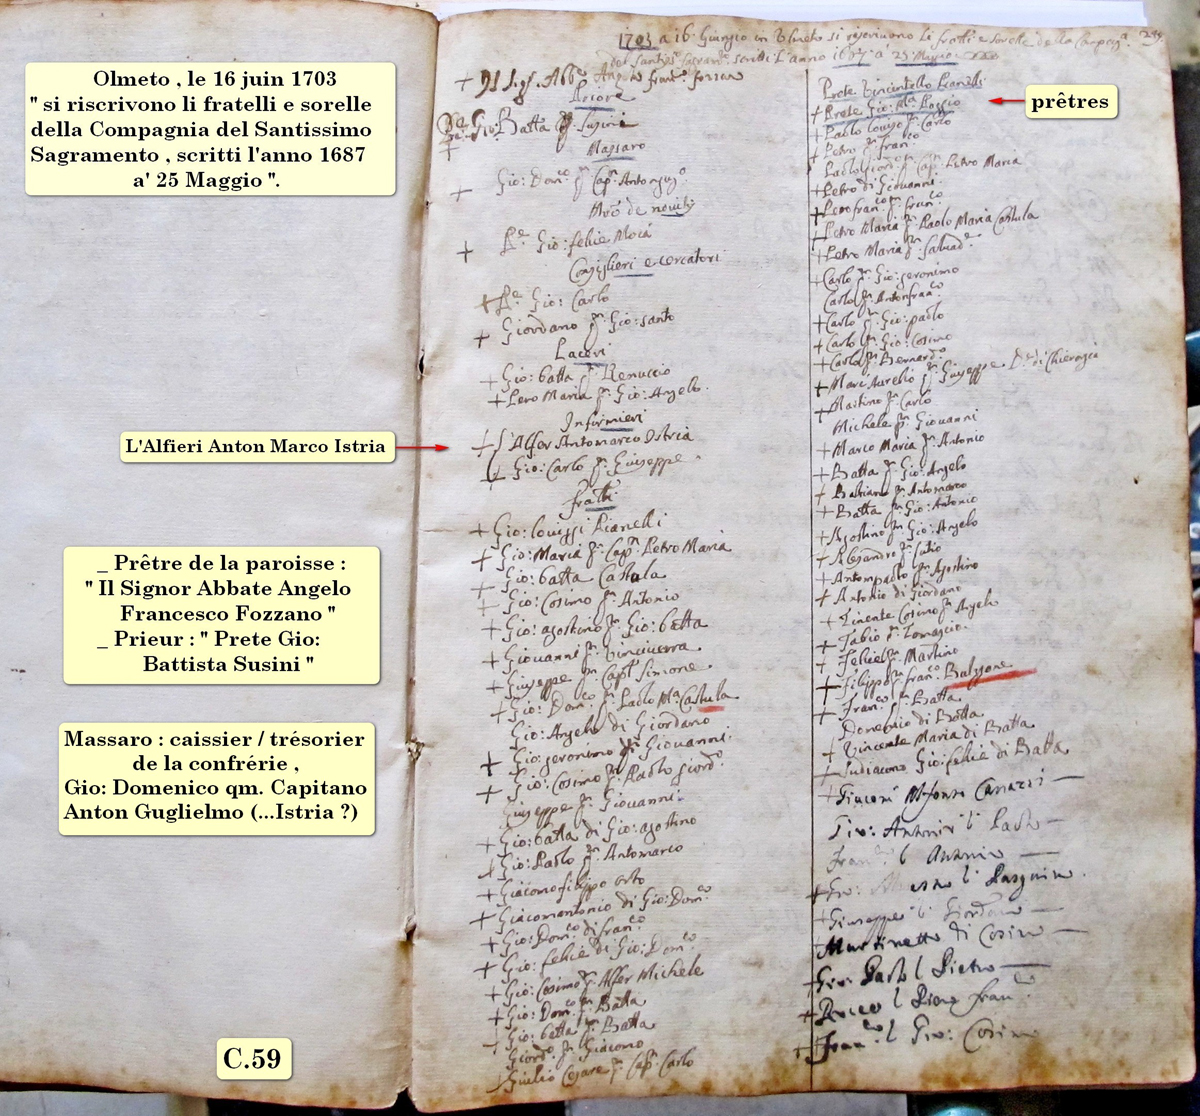 Olmeto , le 16 juin 1703
" si riscrivono li fratelli e sorelle
della Compagnia del Santissimo
Sagramento , scritti l'anno 1687
a' 25 Maggio ".
L'Alfieri Anton Marco Istria
_ Prêtre de la paroisse :
" Il Signor Abbate Angelo
Francesco Fozzano "
_ Prieur : " Prete Gio:
Battista Susini "
Massaro : caissier / trésorier
de la confrérie ,
Gio: Domenico qm. Capitano
Anton Guglielmo (...Istria ?)
C.59
prêtres
1703 a 16 Giugno in Olmeto si riscrivono li fratti e sorelle della Compagª.
scritti l'anno 1687 a' 25 Maggio
+ Il Sigr. Abbe Angelo francº fozzan
Priore
Gio: Batta qm Susini
+
Massaro
+ Gio: Domco qm Capn Antongugo
Mro de novitij
+ Pe Gio: felice
Consiglieri e cercatori
+ Pe Gio: Carlo
+ Giordano qm Gio: santo
+ Gio: batta qm Renuccio
+ Pero Maria qm Gio: Angelo.
Infirmieri
+ L'Alfer Antomarco Istria
+ Gio: Carlo qm Giuseppe
fratti
+ Gio: louiggi Pianelli
+ Gio: Maria qm Capn Petro Maria
+ Gio: batta Castula
+ Gio: Cosimo qm Antonio
+ Gio: agostino qm Gio: batta
+ Giovanni qm Vinciuerra
+ Giuseppe qm Capn Simone
+ Gio: Domco qm Paolo Ma Castula
Gio: Angelo di Giordano
+ Gio: geronimo qm Giovanni
+ Gio: Cosimo qm Paolo giordo
Giuseppe qm Giovanni
+ Gio: batta di Gio: agostino
+ Gio: Paolo qm Antomarco
+ Giacomofilippo orto
+ Giacomantonio di Gio: Domco
+ Gio: Domco di franco
+ Gio: felice di Gio: Domco
+ Gio: Cosimo qm Alfer Michele
+ Gio: Domco qm Batta
+ Gio: batta qm Batta
Giordo qm Giacomo
+ Giulio Cesare qm Capn Carlo
Prete Vincintello Pianelli
+ Prete Gio: Ma Poggio
+ Paolo louigo qm Carlo
+ Petro qm franco
Paologiordo qm Capn Petro Maria
+ Petro di Giovanni
+ Perofranco qm franco
+ Petro Maria qm Paolo Maria Castula
+ Petro Maria qm Salvade
+ Carlo qm Gio: geronimo
Carlo qm Antonfranco
+ Carlo qm Gio: paolo
+ Carlo qm Gio: Cosimo
+ Carlo qm Bernardo
+ Marc Aurelio qm Giuseppe
+ Martino qm Carlo
Michele qm Giovanni
+ Marco Maria qm Antonio
+ Batta qm Gio: Angelo
+ Bastiano qm Antomarco
+ Batta qm Gio: Antonio
+ Agostino qm Gio: Angelo
+ Alesandro qm
+ Antompaolo qm Agostino
+ Antonio di Giordano
+ Cosimo qm Angelo
+ Fabio qm Tomasio
+ Felice qm Martino
+ Filippo qm franco Balisone
+ Franco qm Batta
Domenico di Batta
+ Vincente Maria di Batta
+ Sudiacono Gio: felice di Batta
+ Alfonso
Gio: Antonio Paolo
Antonio
+ Gio: Pasquino
+ Giuseppe Giordano
+ Martinetto di Cosimo
+ Gio: Paolo Pietro
+ Rocco
+ franco Gio: Cosimo